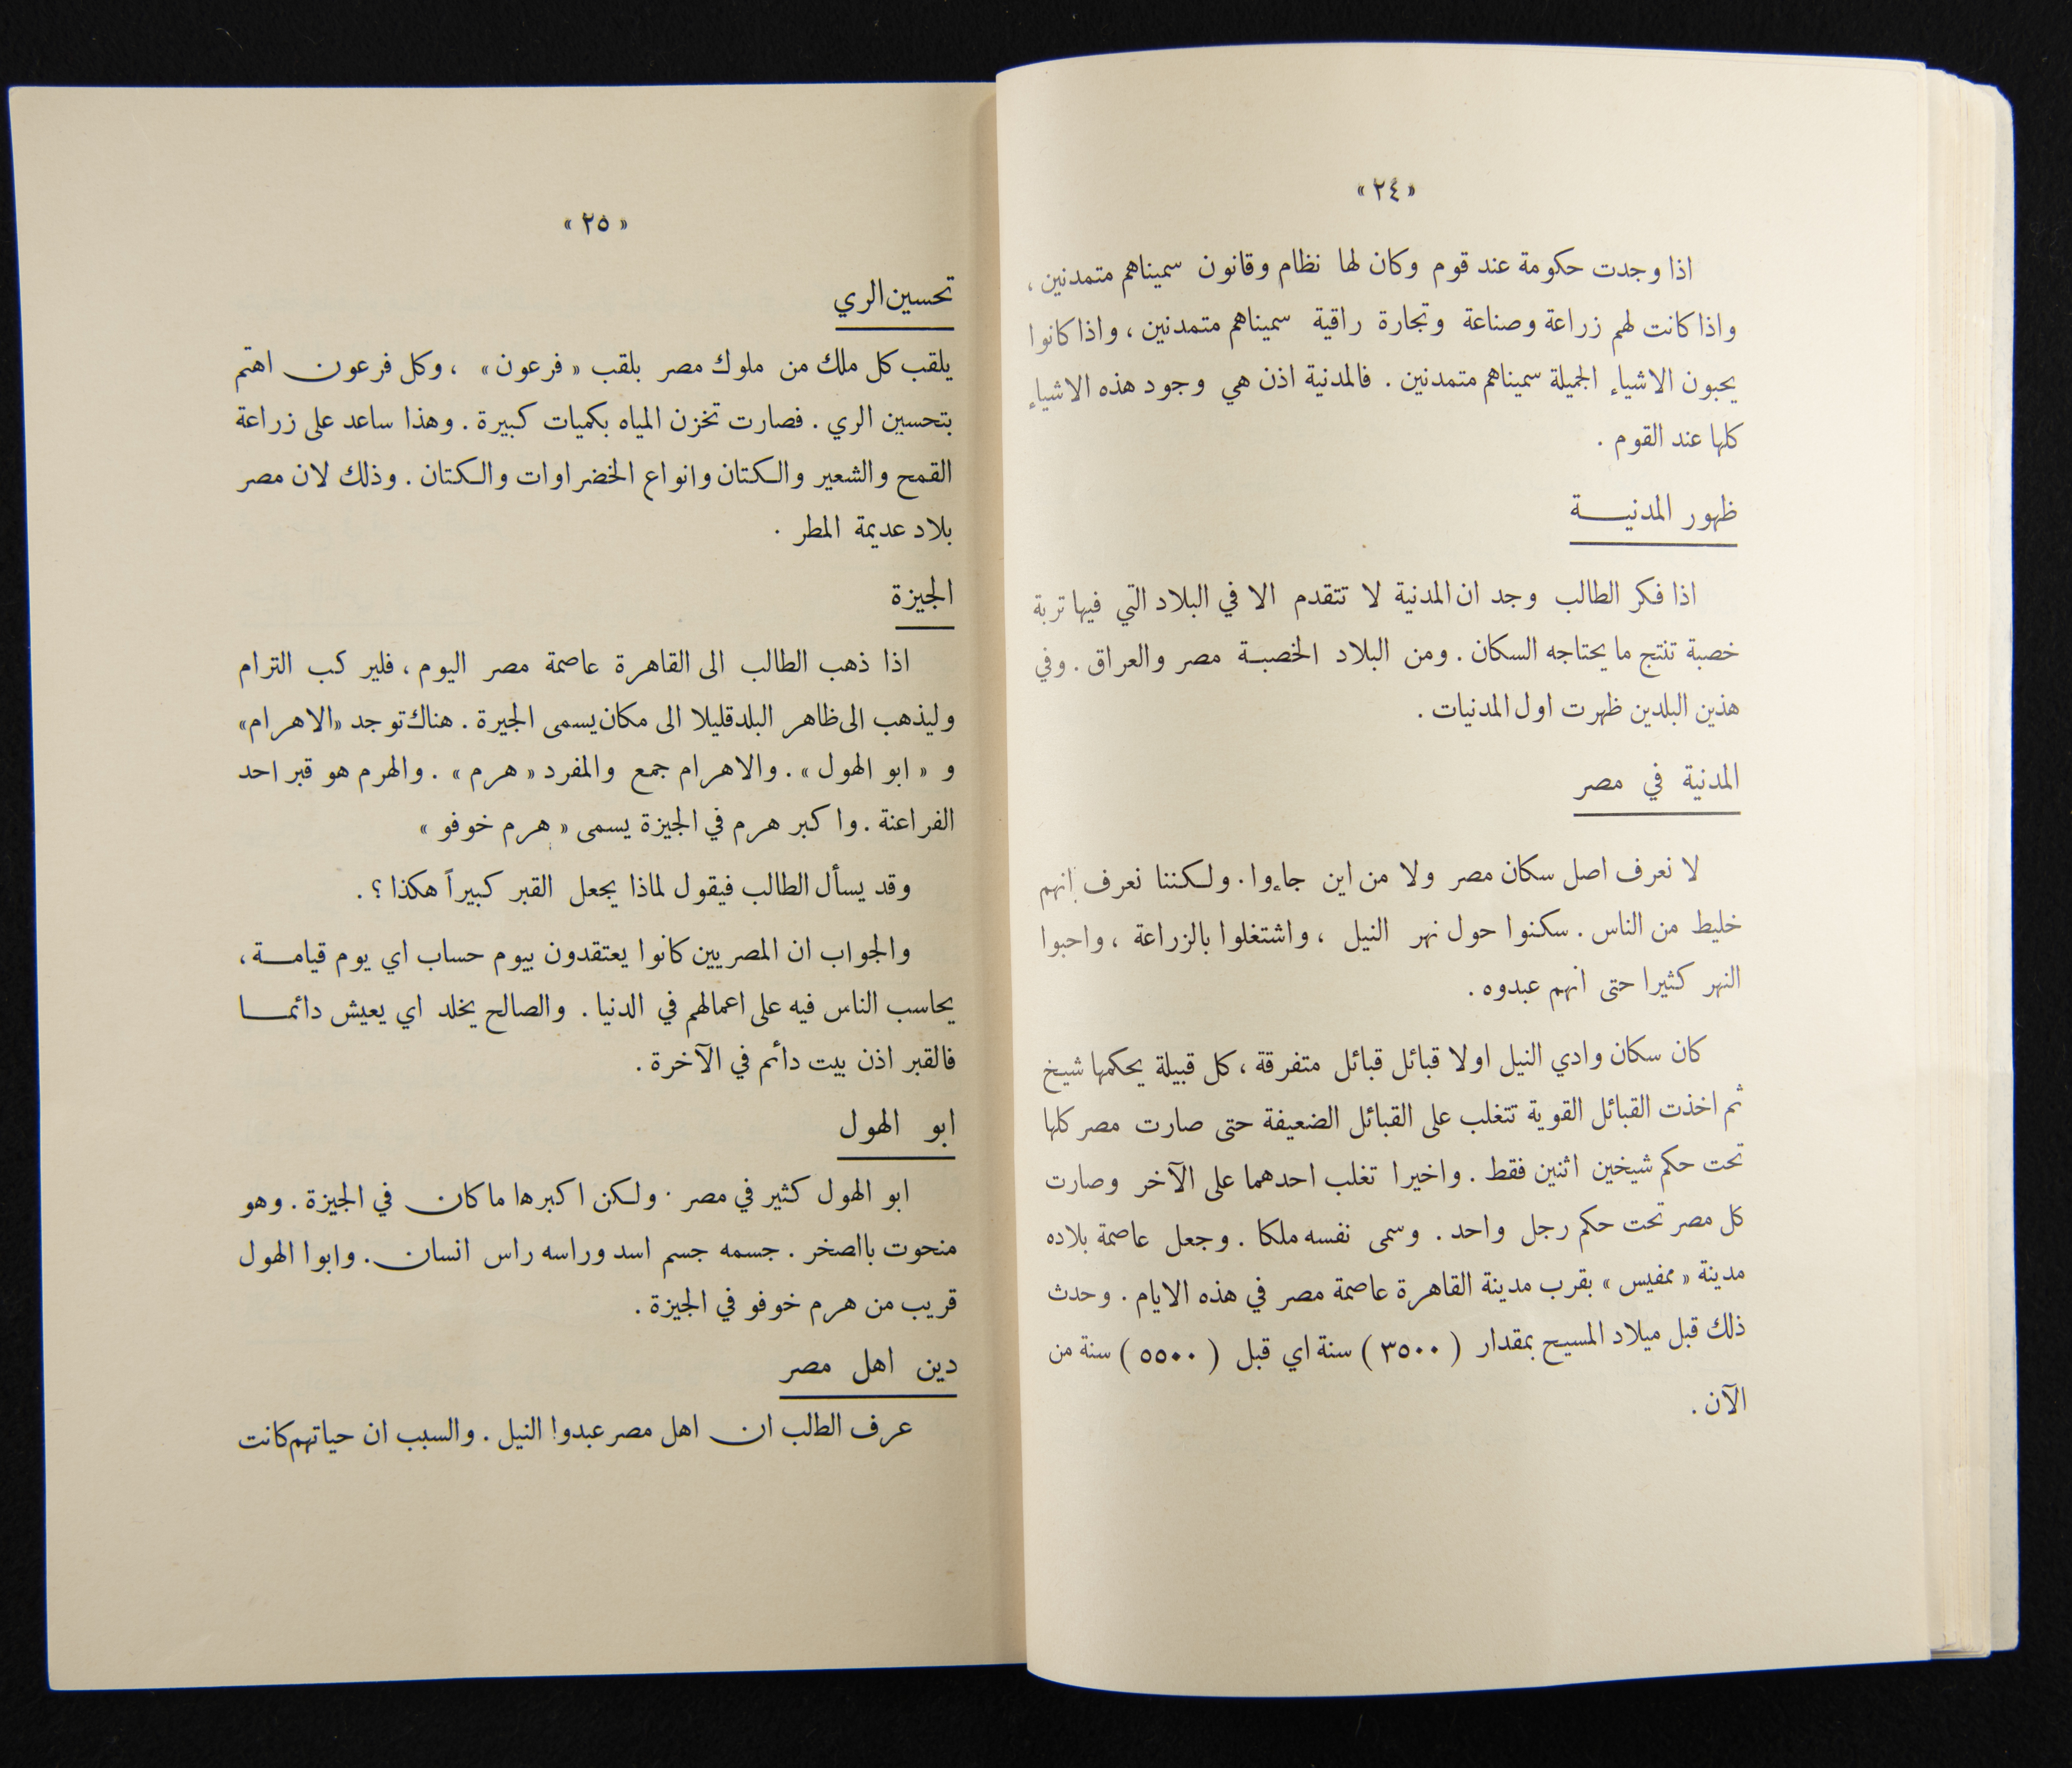 « ٢٤ »
اذا وجدت حكومة عند قوم وكان لها نظام وقانون سميناهم متمدنين ،
واذا كانت لهم زراعة وصناعة وتجارة راقية سميناهم متمدنين ، واذا كانوا
يحبون الاشياء الجميلة سميناهم متمدنين . فالمدنية اذن هي وجود هذه الاشياء
كلها عند القوم .
ظهور المدنيـــة
اذا فكر الطالب وجد ان المدنية لا تتقدم الا في البلاد التي فيها تربة
خصبة تنتج ما يحتاجه السكان . ومن البلاد الخصبـة مصر والعراق . وفي
هذين البلدين ظهرت اول المدنيات .
المدنية في مصر
لا نعرف اصل سكان مصر ولا من اين جاءوا . ولكننا نعرف انهم
خليط من الناس . سكنوا حول نهر النيل ، واشتغلوا بالزراعة ، واحبوا
النهر كثيرا حتى انهم عبدوه .
كان سكان وادي النيل اولا قبائل قبائل متفرقة ، كل قبيلة يحكمها شيخ
ثم اخذت القبائل القوية تتغلب على القبائل الضعيفة حتى صارت مصر كلها
تحت حكم شيخين اثنين فقط . واخيرا تغلب احدهما على الآخر وصارت
كل مصر تحت حكم رجل واحد . وسمى نفسه ملكا . وجعل عاصمة بلاده
مدينة « ممفيس » بقرب مدينة القاهرة عاصمة مصر في هذه الايام . وحدث
ذلك قبل ميلاد المسيح بمقدار ( ٣٥٠٠ ) سنة اي قبل ( ٥٥٠٠ ) سنة من
الآن .
« ٢٥ »
تحسين الري
يلقب كل ملك من ملوك مصر بلقب « فرعون » ، وكل فرعون اهتم
بتحسين الري . فصارت تخزن المياه بكميات كبيرة . وهذا ساعد على زراعة
القمح والشعير والكتان وانواع الخضراوات والكتان . وذلك لان مصر
بلاد عديمة المطر .
الجيزة
اذا ذهب الطالب الى القاهرة عاصمة مصر اليوم ، فليركب الترام
وليذهب الى ظاهر البلد قليلا الى مكان يسمى الجيرة . هناك توجد «الاهرام»
و « ابو الهول » . والاهرام جمع والمفرد « هرم » . والهرم هو قبر احد
الفراعنة . واكبر هرم في الجيزة يسمى « هرم خوفو »
وقد يسأل الطالب فيقول لماذا يجعل القبر كبيراً هكذا ؟ .
والجواب ان المصريين كانوا يعتقدون بيوم حساب اي يوم قيامـــة ،
يحاسب الناس فيه على اعمالهم في الدنيا . والصالح يخلد اي يعيش دائمـــا
فالقبر اذن بيت دائم في الآخرة .
ابو الهول
ابو الهول كثير في مصر . ولكن اكبرها ما كان في الجيزة . وهو
منحوت باالصخر . جسمه جسم اسد وراسه راس انسان . وابوا الهول
قريب من هرم خوفو في الجيزة .
دين اهل مصر
عرف الطالب ان اهل مصر عبدوا النيل . والسبب ان حياتهم كانت